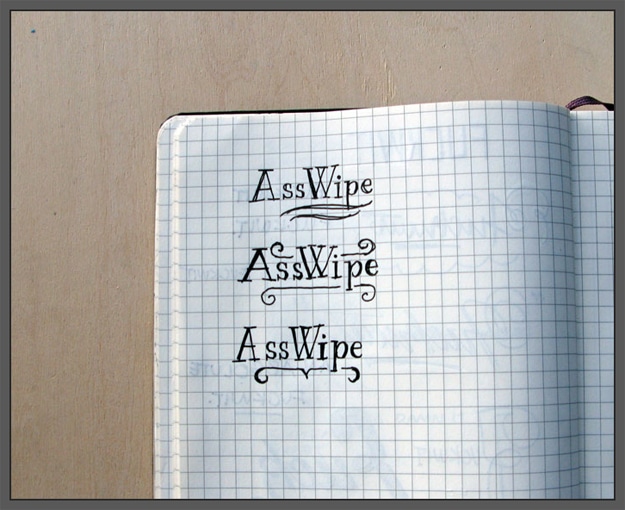 AssWipe
AssWipe
AssWipe